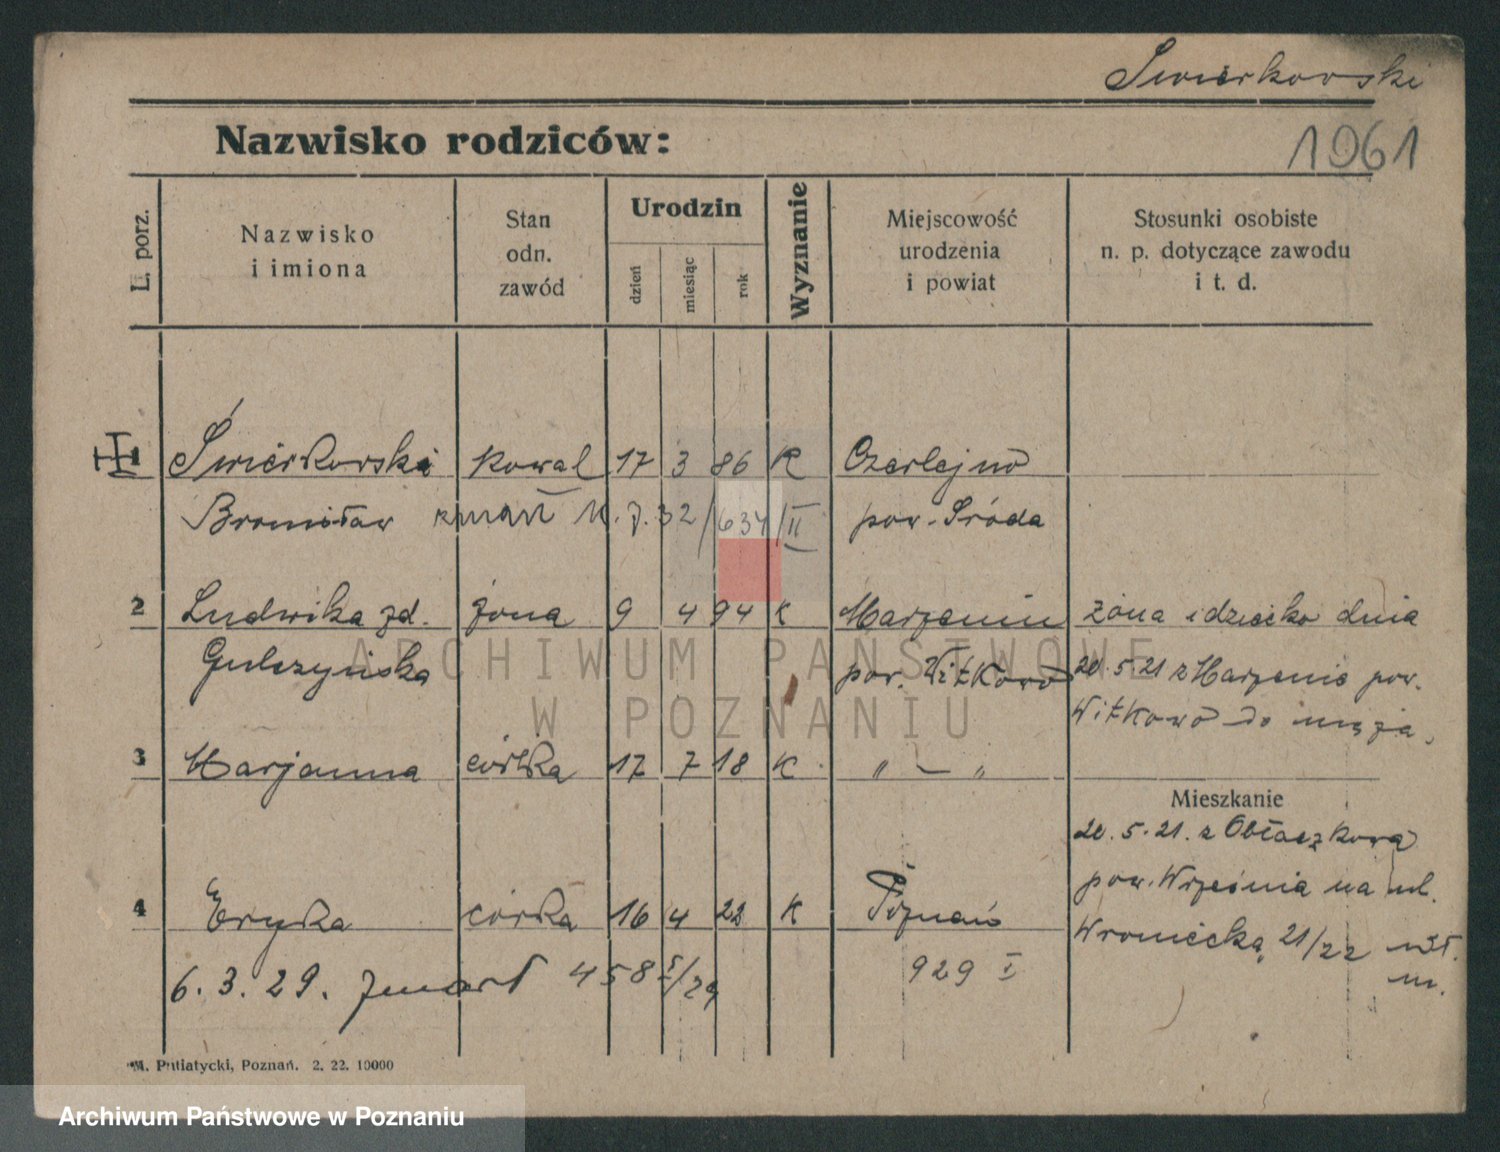 Swierkowski
Nazwisko rodziców:
1961
L. porz.
Nazwisko
i imiona
Stan
odn.
zawód
Urodzin
dzień
miesiąc
rok
Wyznanie
Miejscowość
urodzenia
i powiat
Stosunki osobiste
n. p. dotyczące zawodu
i t. d.
1 Świerkowski kowal 17 3 86 K Czerlejno
Bronisław zmarł 11. 7. 32/634/II pow. Środa
2 Ludwika zd. żona 9 4 94 K Marzenin żona i dziecko dnia
Gulczyńska pow. Witkowo 20.5.21 z Marzenic pow.
Witkowo do męża,
3 Marjanna córka 17 7 18 K " — "
Mieszkanie
20.5.21. z Obłaczkowa
pow. Września na ul.
4 Eryka córka 16 4 22 K Poznań
Wroniecką 21/22
6. 3. 29. zmarł 458 I/29 929 I
M. Putiatycki, Poznań. 2. 22. 10000
ARCHIWUM PAŃSTWOWE
W POZNANIU
Archiwum Państwowe w Poznaniu